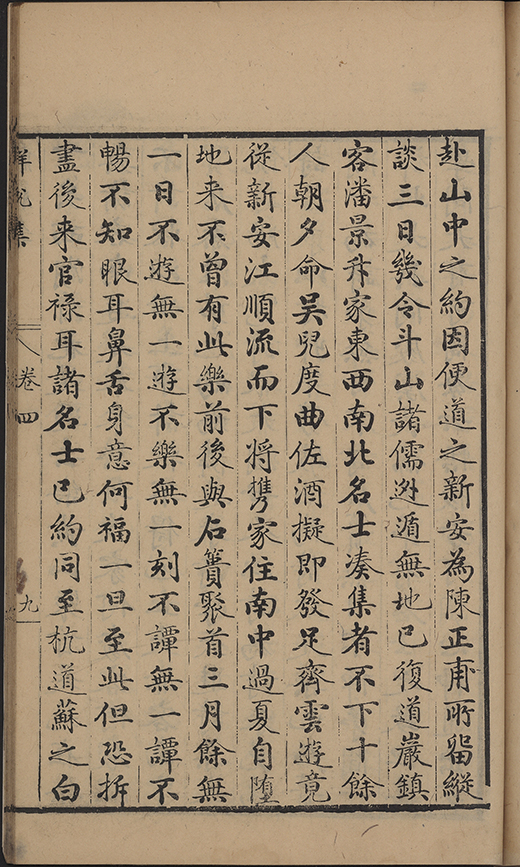 赴山中之約因便道之新安為陳正甫所留縱
談三日幾令斗山諸儒逊遁無地已復道巖鎮
客潘景升家東西南北名士湊集者不下十餘
人朝夕命吴兒度曲佐酒擬即發足齊雲遊竟
従新安江順流而下将攜家住南中過夏自堕
地来不曾有此樂前後與石簣聚首三月餘無
一日不遊無一遊不樂無一刻不譚無一譚不
暢不知眼耳鼻舌身意何福一旦至此但恐折
盡後来官禄耳諸名士已約同至杭道蘇之白
卷四
九